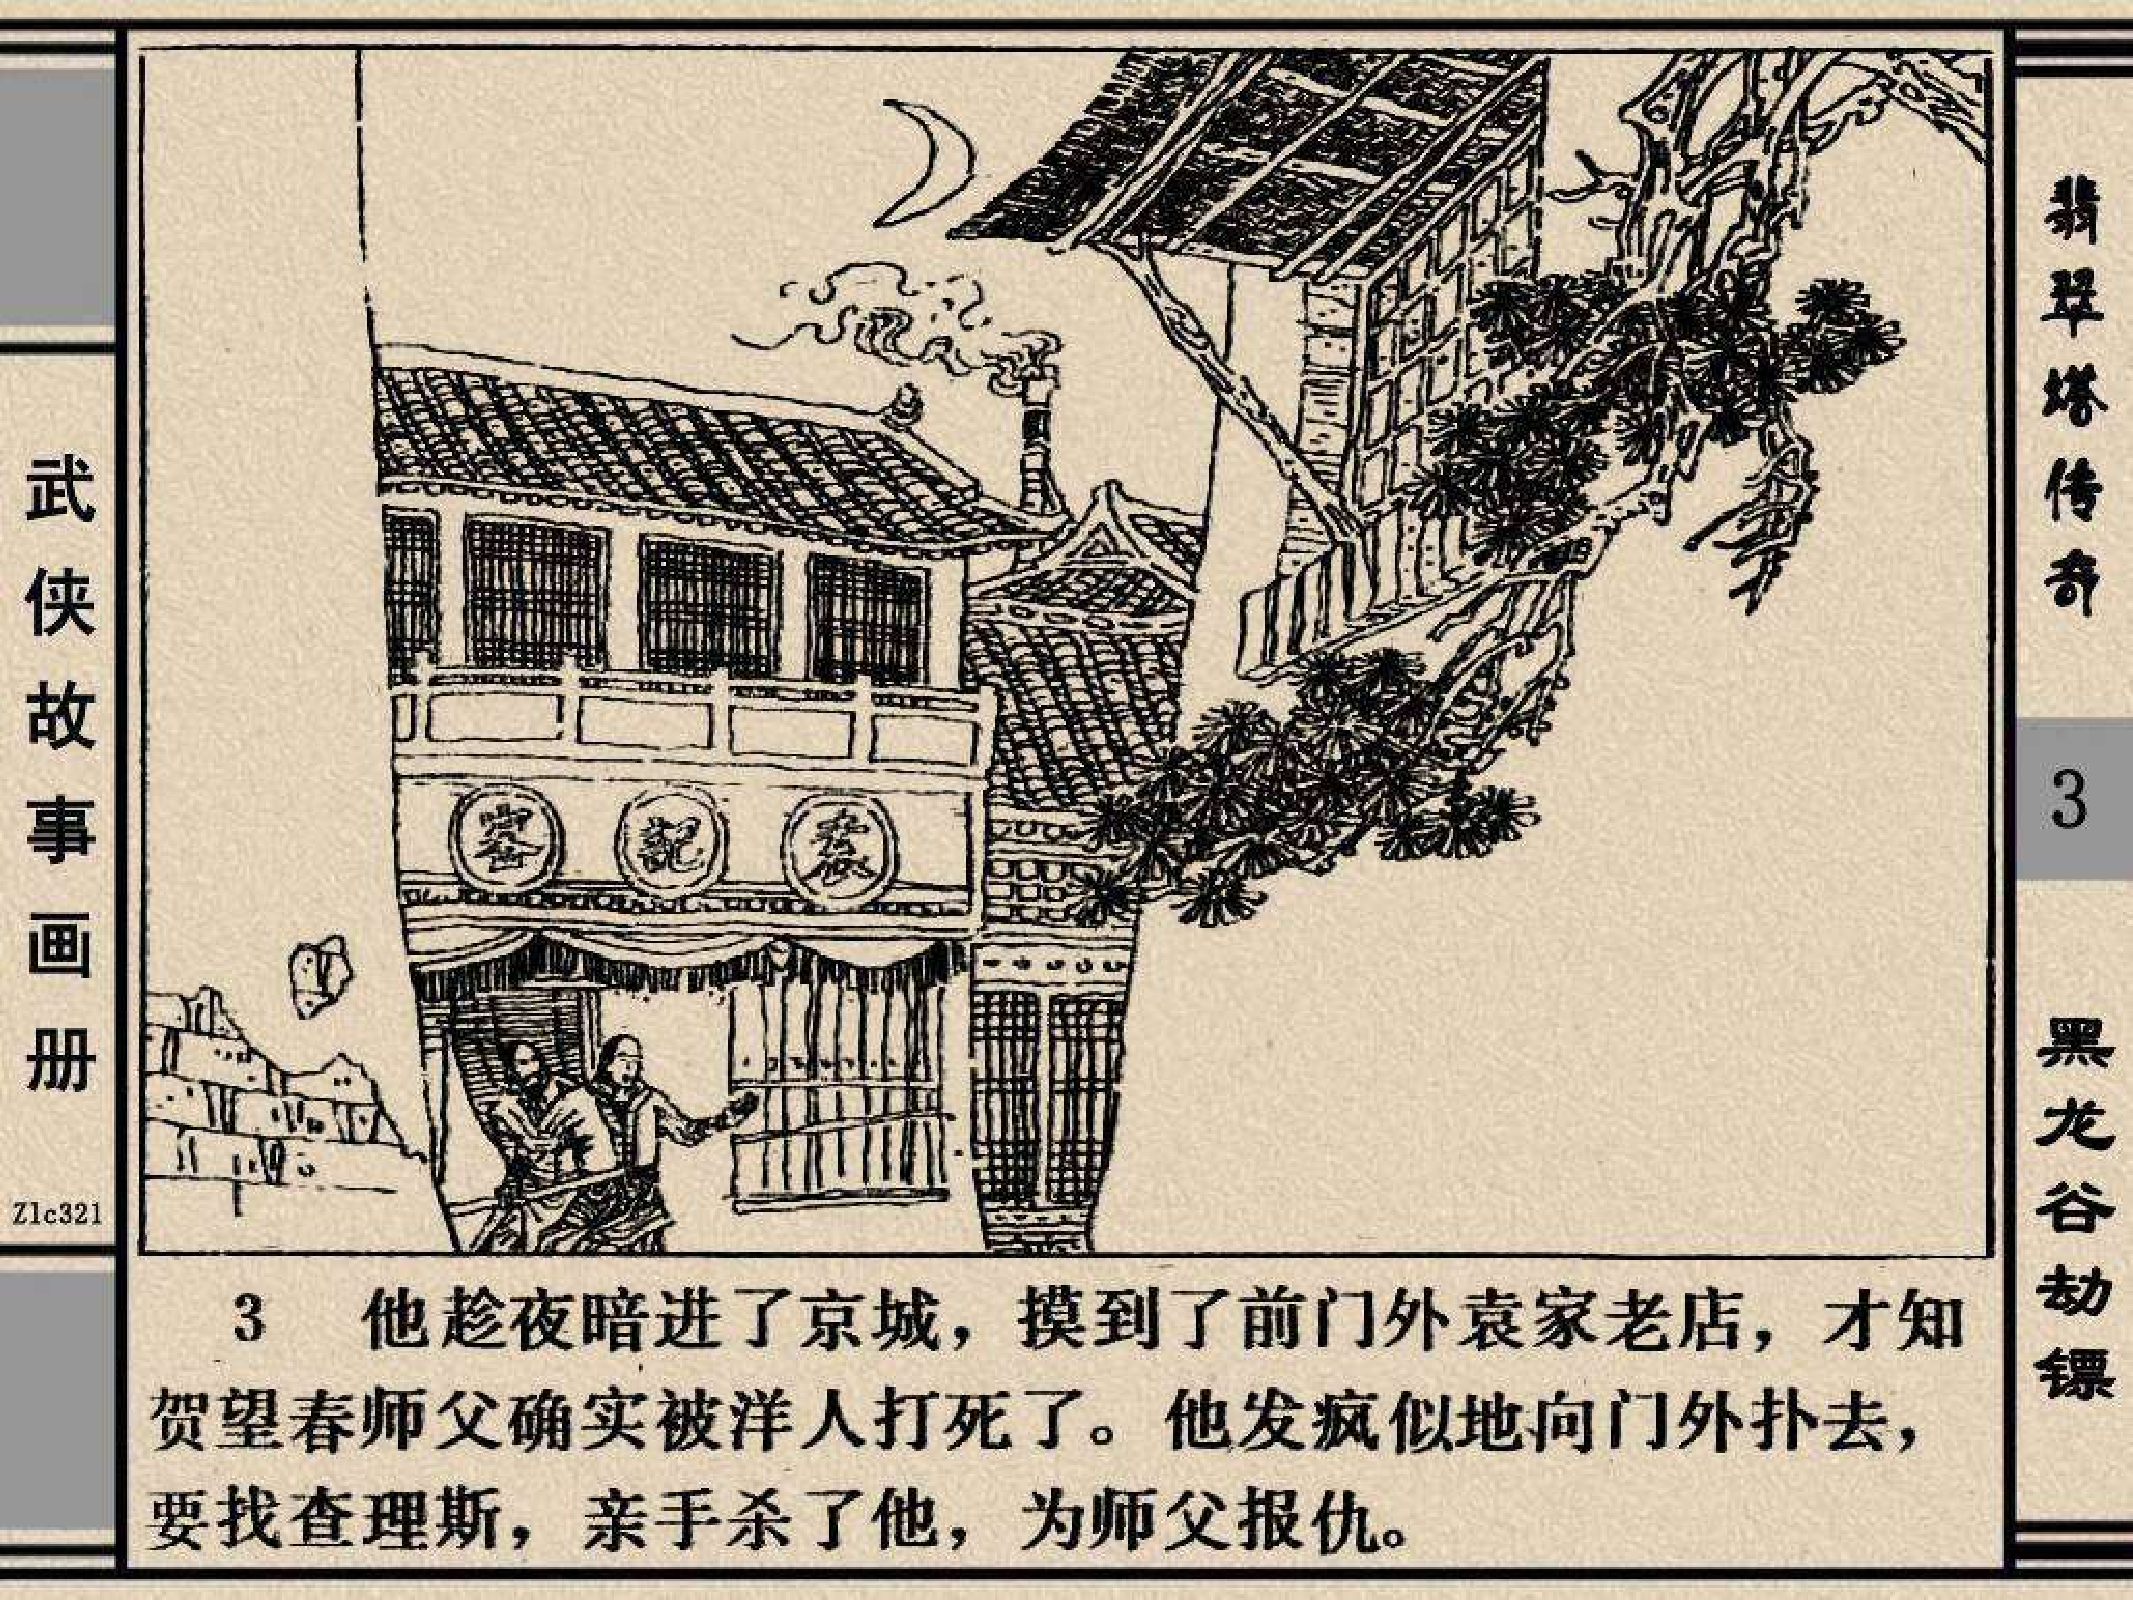 武侠故事画册
Zlc321
记
3 他趁夜暗进了京城，摸到了前门外袁家老店，才知
贺望春师父确实被洋人打死了。他发疯似地向门外扑去，
要找查理斯，亲手杀了他，为师父报仇。
翡翠塔传奇
3
黑龙谷劫镖